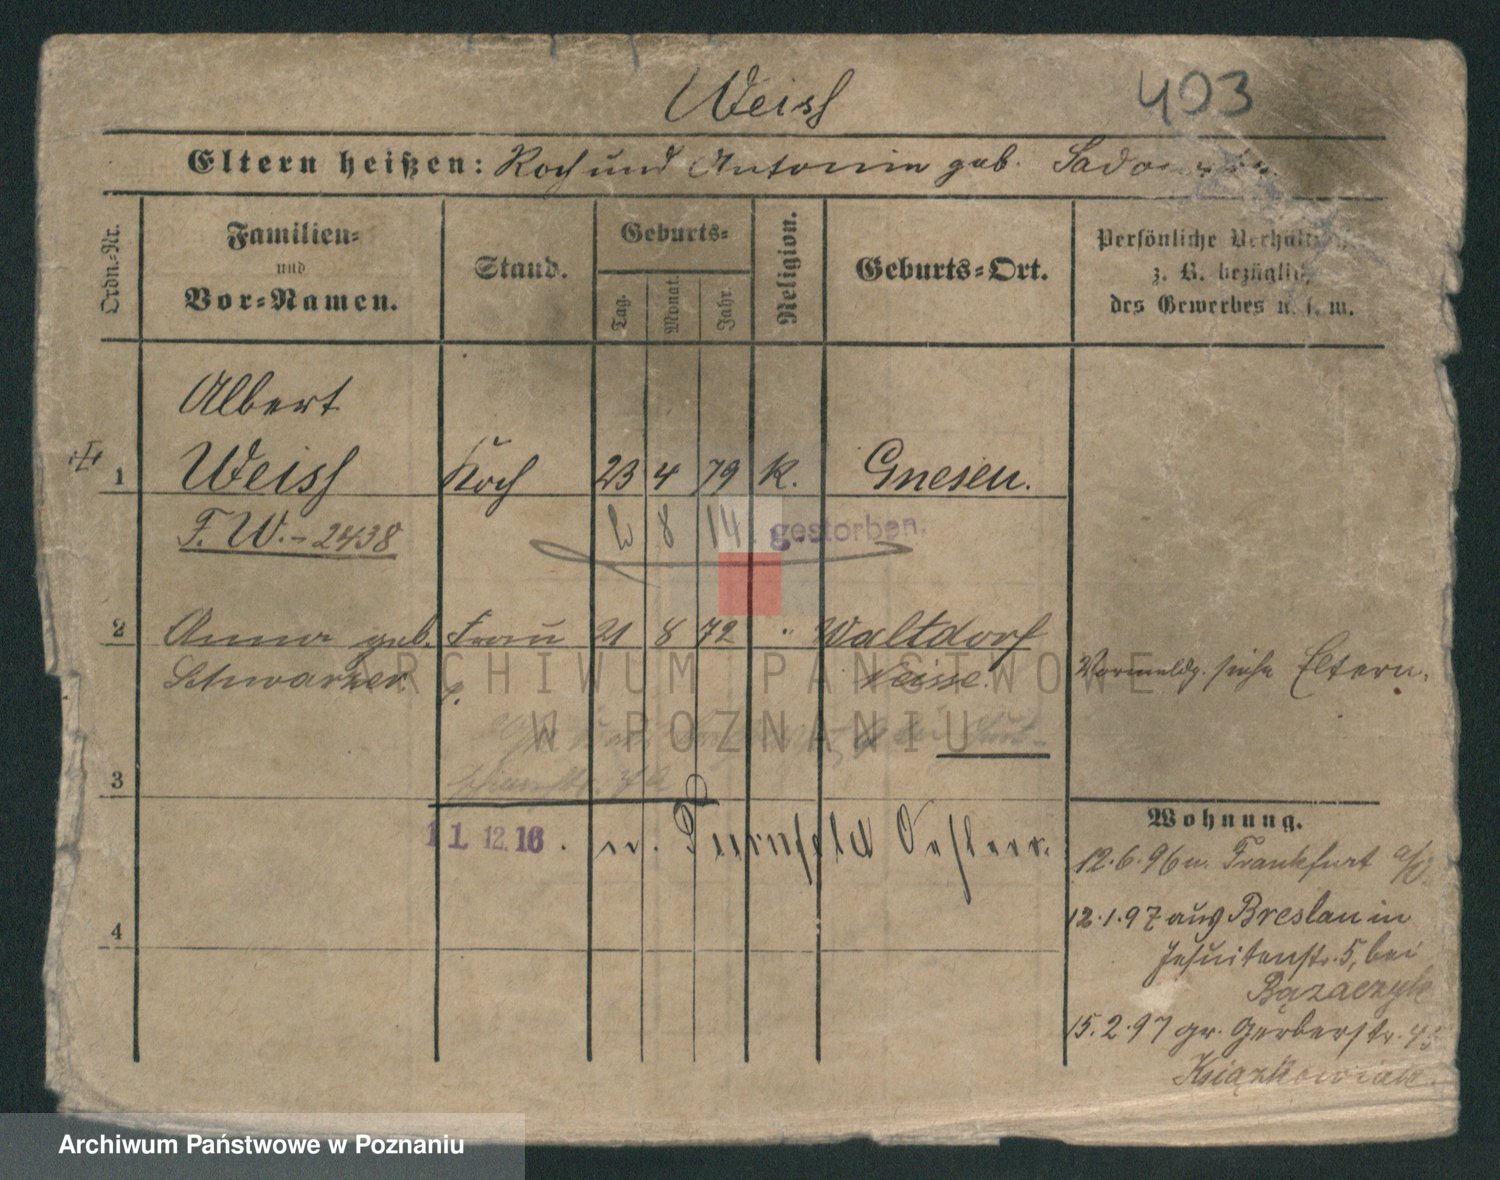 Weiss
403
Eltern heißen: Roch und Antonin geb.
Ordn.-Nr.
Familien- und Vor-Namen.
Stand.
Geburts-
Tag. Monat. Jahr.
Religion.
Geburts-Ort.
Persönliche Verhältnisse
z. B. bezüglich
des Gewerbes u. s. w.
Albert
1 Weiss Koch 23 4 79 K. Gnesen.
F. W. - 2438
2 8 14 gestorben.
2 Anna geb. Frau 21 8 72 " Waltdorf
Schwarzer Neisse.
Vormeldg. siehe Eltern.
3
11.12.16.
4
Wohnung.
12.6.96 n. Frankfurt a/O.
12.1.97 aus Breslau in
Jesuitenstr. 5, bei
Bązaczyk
15.2.97 gr. Gerberstr. 45
Książkowiak
ARCHIWUM PAŃSTWOWE
W POZNANIU
Archiwum Państwowe w Poznaniu